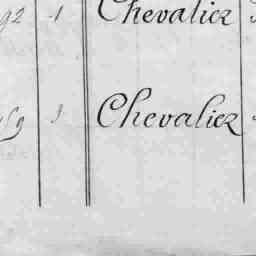 92 1 Chevalier
59 1 Chevalier